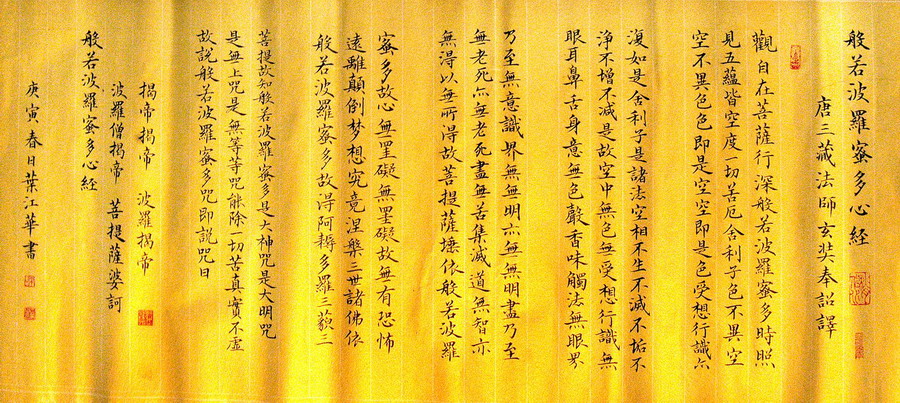 般若波羅蜜多心經
唐三藏法師玄奘奉詔譯
觀自在菩薩行深般若波羅蜜多時照
見五蘊皆空度一切苦厄舍利子色不異空
空不異色色即是空空即是色受想行識亦
復如是舍利子是諸法空相不生不滅不垢不
淨不增不減是故空中無色無受想行識無
眼耳鼻舌身意無色聲香味觸法無眼界
乃至無意識界無無明亦無無明盡乃至
無老死亦無老死盡無苦集滅道無智亦
無得以無所得故菩提薩埵依般若波羅
蜜多故心無罣礙無罣礙故無有恐怖
遠離顛倒梦想究竟涅槃三世諸佛依
般若波羅蜜多故得阿耨多羅三藐三
菩提故知般若波羅蜜多是大神咒是大明咒
是無上咒是無等等咒能除一切苦真實不虛
故說般若波羅蜜多咒即說咒曰
揭帝揭帝 波羅揭帝
波羅僧揭帝 菩提薩婆訶
般若波羅蜜多心經
庚寅春日葉江華書